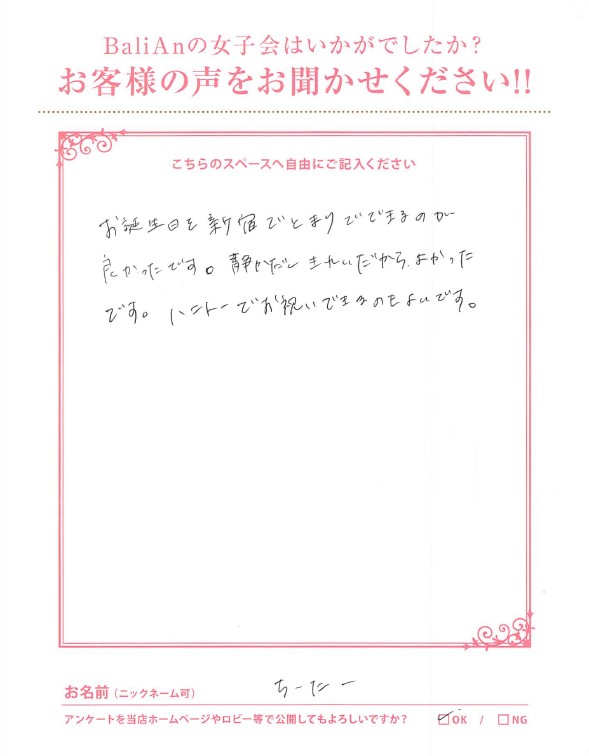 BaliAnの女子会はいかがでしたか?
お客様の声をお聞かせください!!
こちらのスペースへ自由にご記入ください
お誕生日を新宿でとまりでできるのが
良かったです。静かだしきれいだから、よかった
です。ハニトーでお祝いできるのもよいです。
お名前(ニックネーム可) ちーたー
アンケートを当店ホームページやロビー等で公開してもよろしいですか? ☑OK / □NG